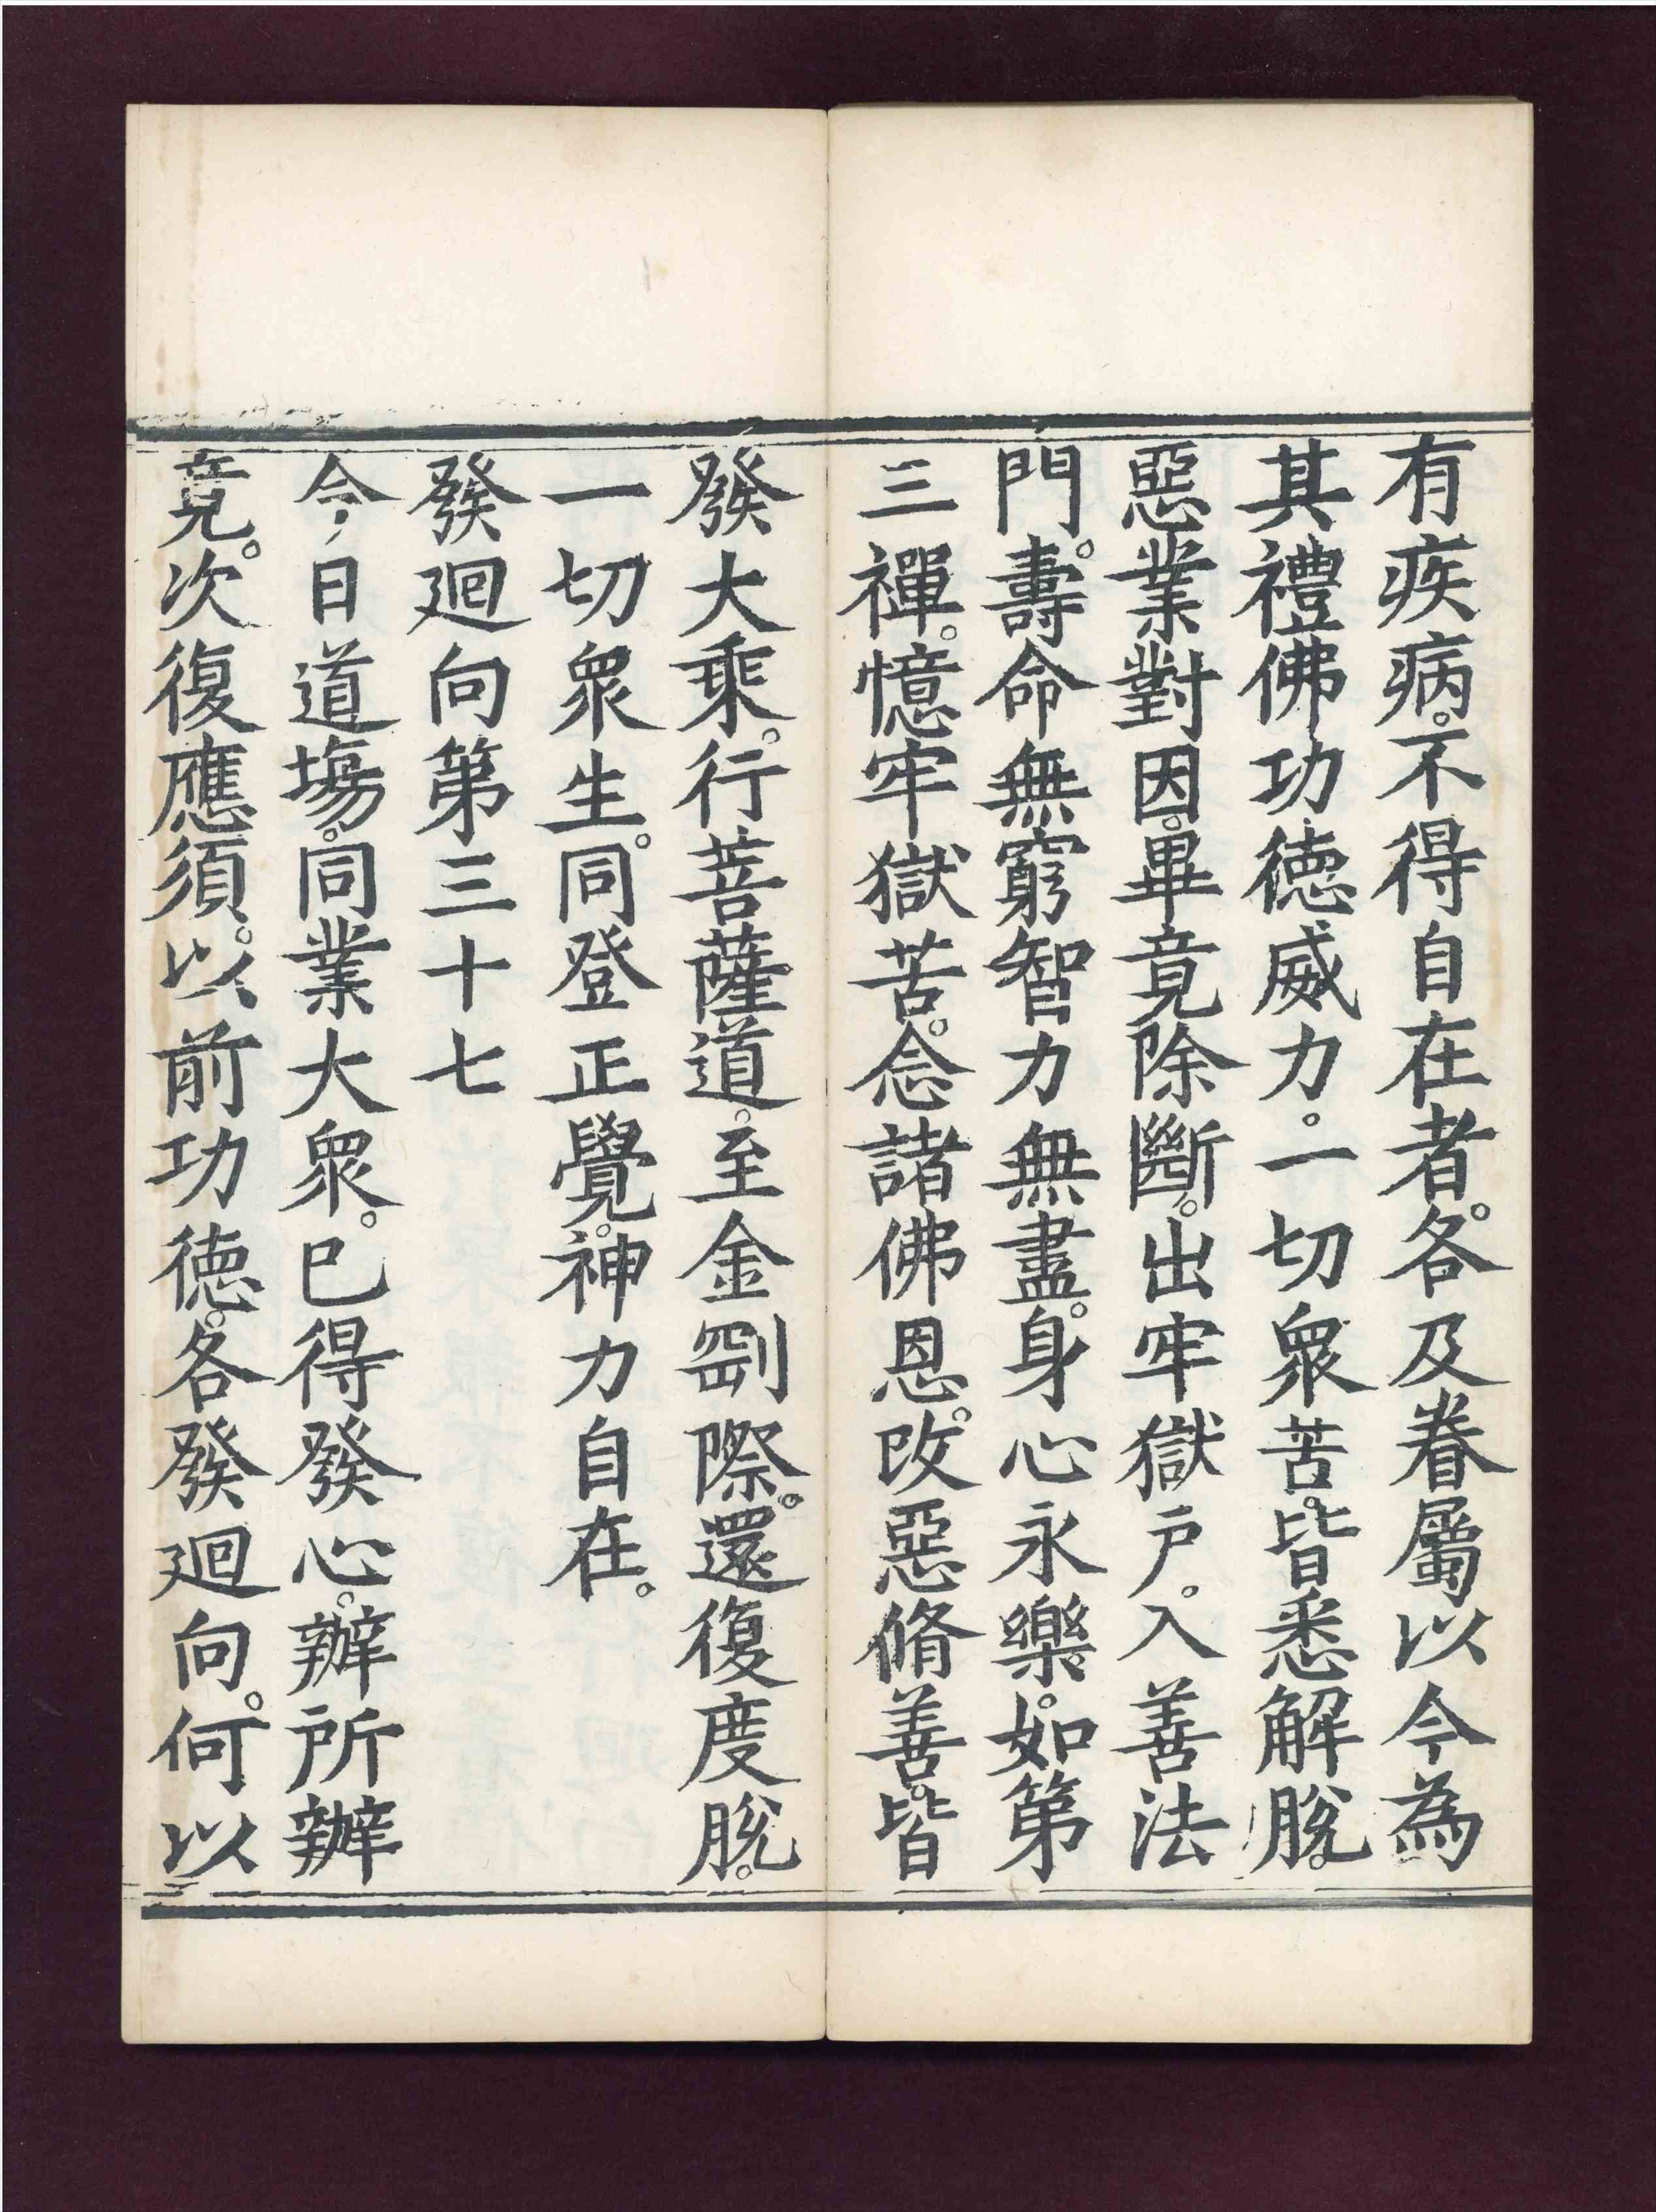 有疾病。不得自在者。各及眷屬以今為
其禮佛功德威力。一切眾苦。皆悉解脫。
惡業對因。畢竟除斷。出牢獄戶。入善法
門。壽命無窮智力無盡。身心永樂。如第
三禪。憶牢獄苦。念諸佛恩。改惡脩善。皆
發大乘。行菩薩道。至金剛際。還復度脫。
一切眾生。同登正覺。神力自在。
發迴向第三十七
今日道場。同業大眾。已得發心。辦所辦
竟。次復應須。以前功德。各發迴向。何以